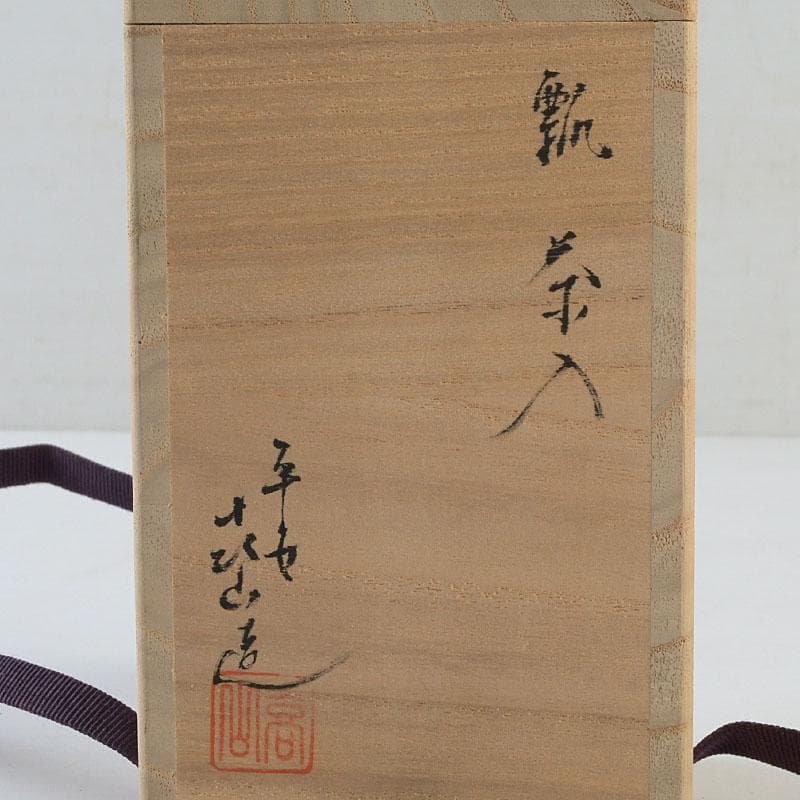 瓢 茶入
平安
山造